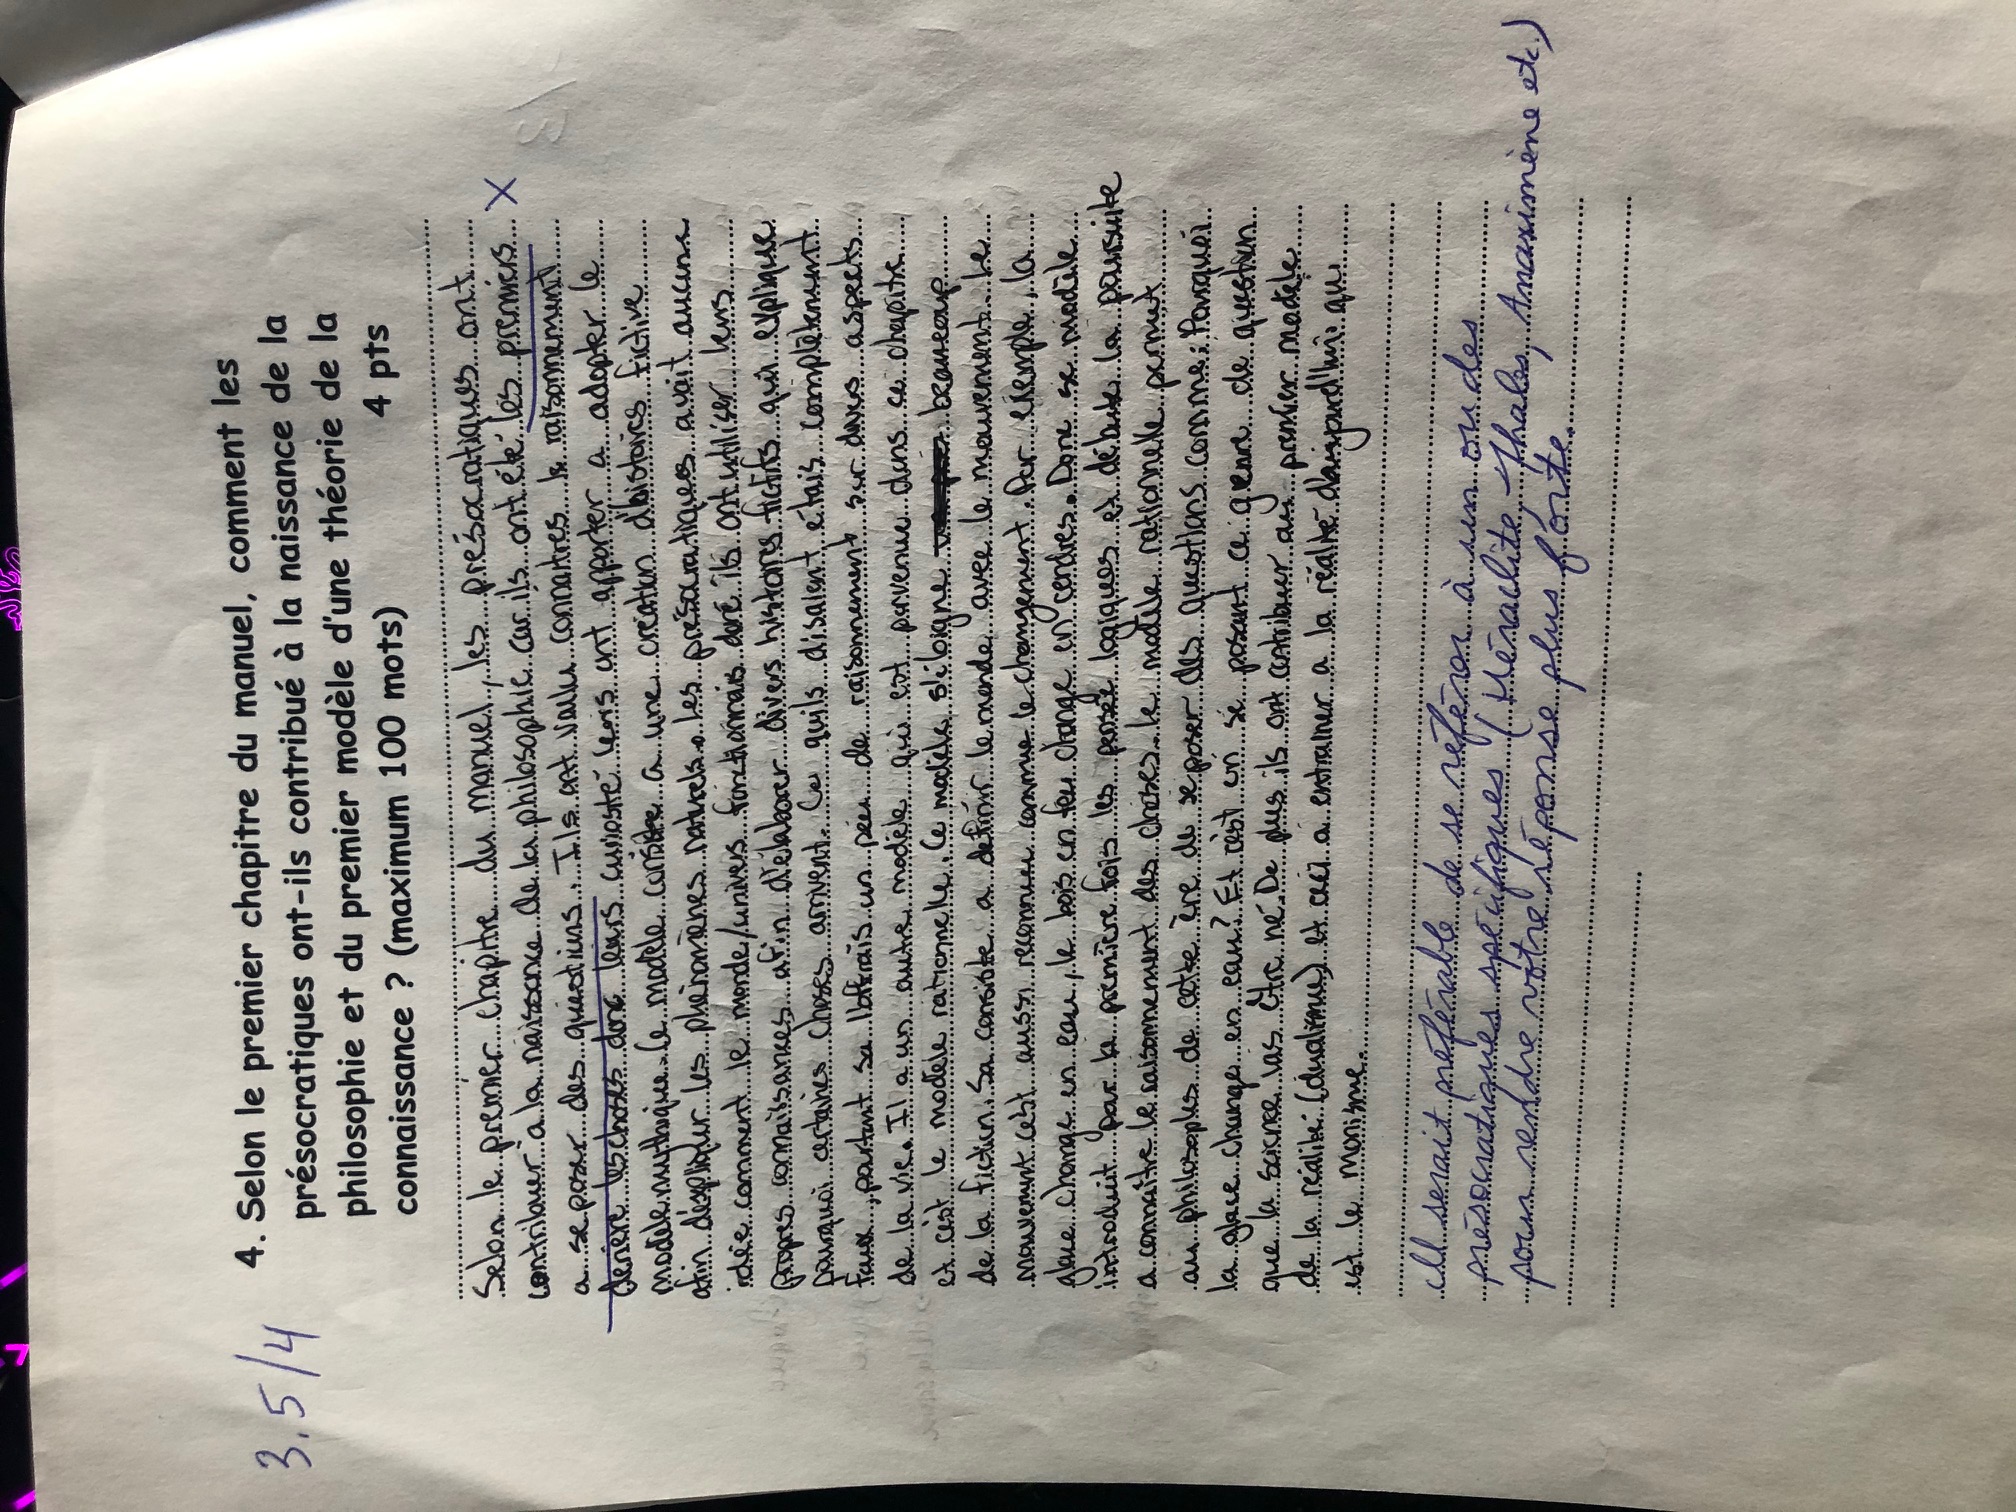 3.5/4
4. Selon le premier chapitre du manuel, comment les
présocratiques ont-ils contribué à la naissance de la
philosophie et du premier modèle d'une théorie de la
connaissance ? (maximum 100 mots)
4 pts
Selon le premier chapitre du manuel, les présocratiques ont
contribuer à la naissance de la philosophie car ils ont été les premiers X
a se poser des questions. Ils ont valu connaitres le raisonnement
derière les choses donc leurs curiosité leurs ont apporter a adopter le
modèle mythique. Ce modèle consiste a une création d'histoires fictive
afin d'expliquer les phénomènes naturels. Les présocratiques avait aucune
idée comment le monde/univers fonctionnais donc ils ont utiliser leurs
propres connaissances afin d'élaborer divers histoires fictifs qui explique
pourquoi certaines choses arrivent. Ce quils disaient étais complètement
faux, pourtant sa un peu de raisonnement sur divers aspects
de la vie. Il a un autre modèle qui est parvenue dans ce chapitre
et c'est le modèle rationnelle. Ce modèle s'éloigne beaucoup
de la fiction. Sa consiste a définir le monde avec le mouvement. Le
mouvement c'est aussi reconnue comme le changement. Par exemple, la
glace change en eau, le bois en feu change en cendres. Donc se modèle
introduit par la première fois les pensée logiques et débute la poursuite
a connaître le raisonnement des choses. Le modèle rationnelle permit
au philosophes de cette ère de se poser des questions comme: Pourquoi
la glace change en eau? Et c'est en se posant ce genre de question
que la science las être né. De plus ils ont contribuer au premier modèle
de la réalité (dualisme) et ceci a entrainer a la réalité d'aujourd'hui qui
est le monisme.
Il serait préférable de se référer à un ou des
présocratiques spécifiques (Héraclite, Thalès, Anaximène etc.)
pour rendre votre réponse plus forte.